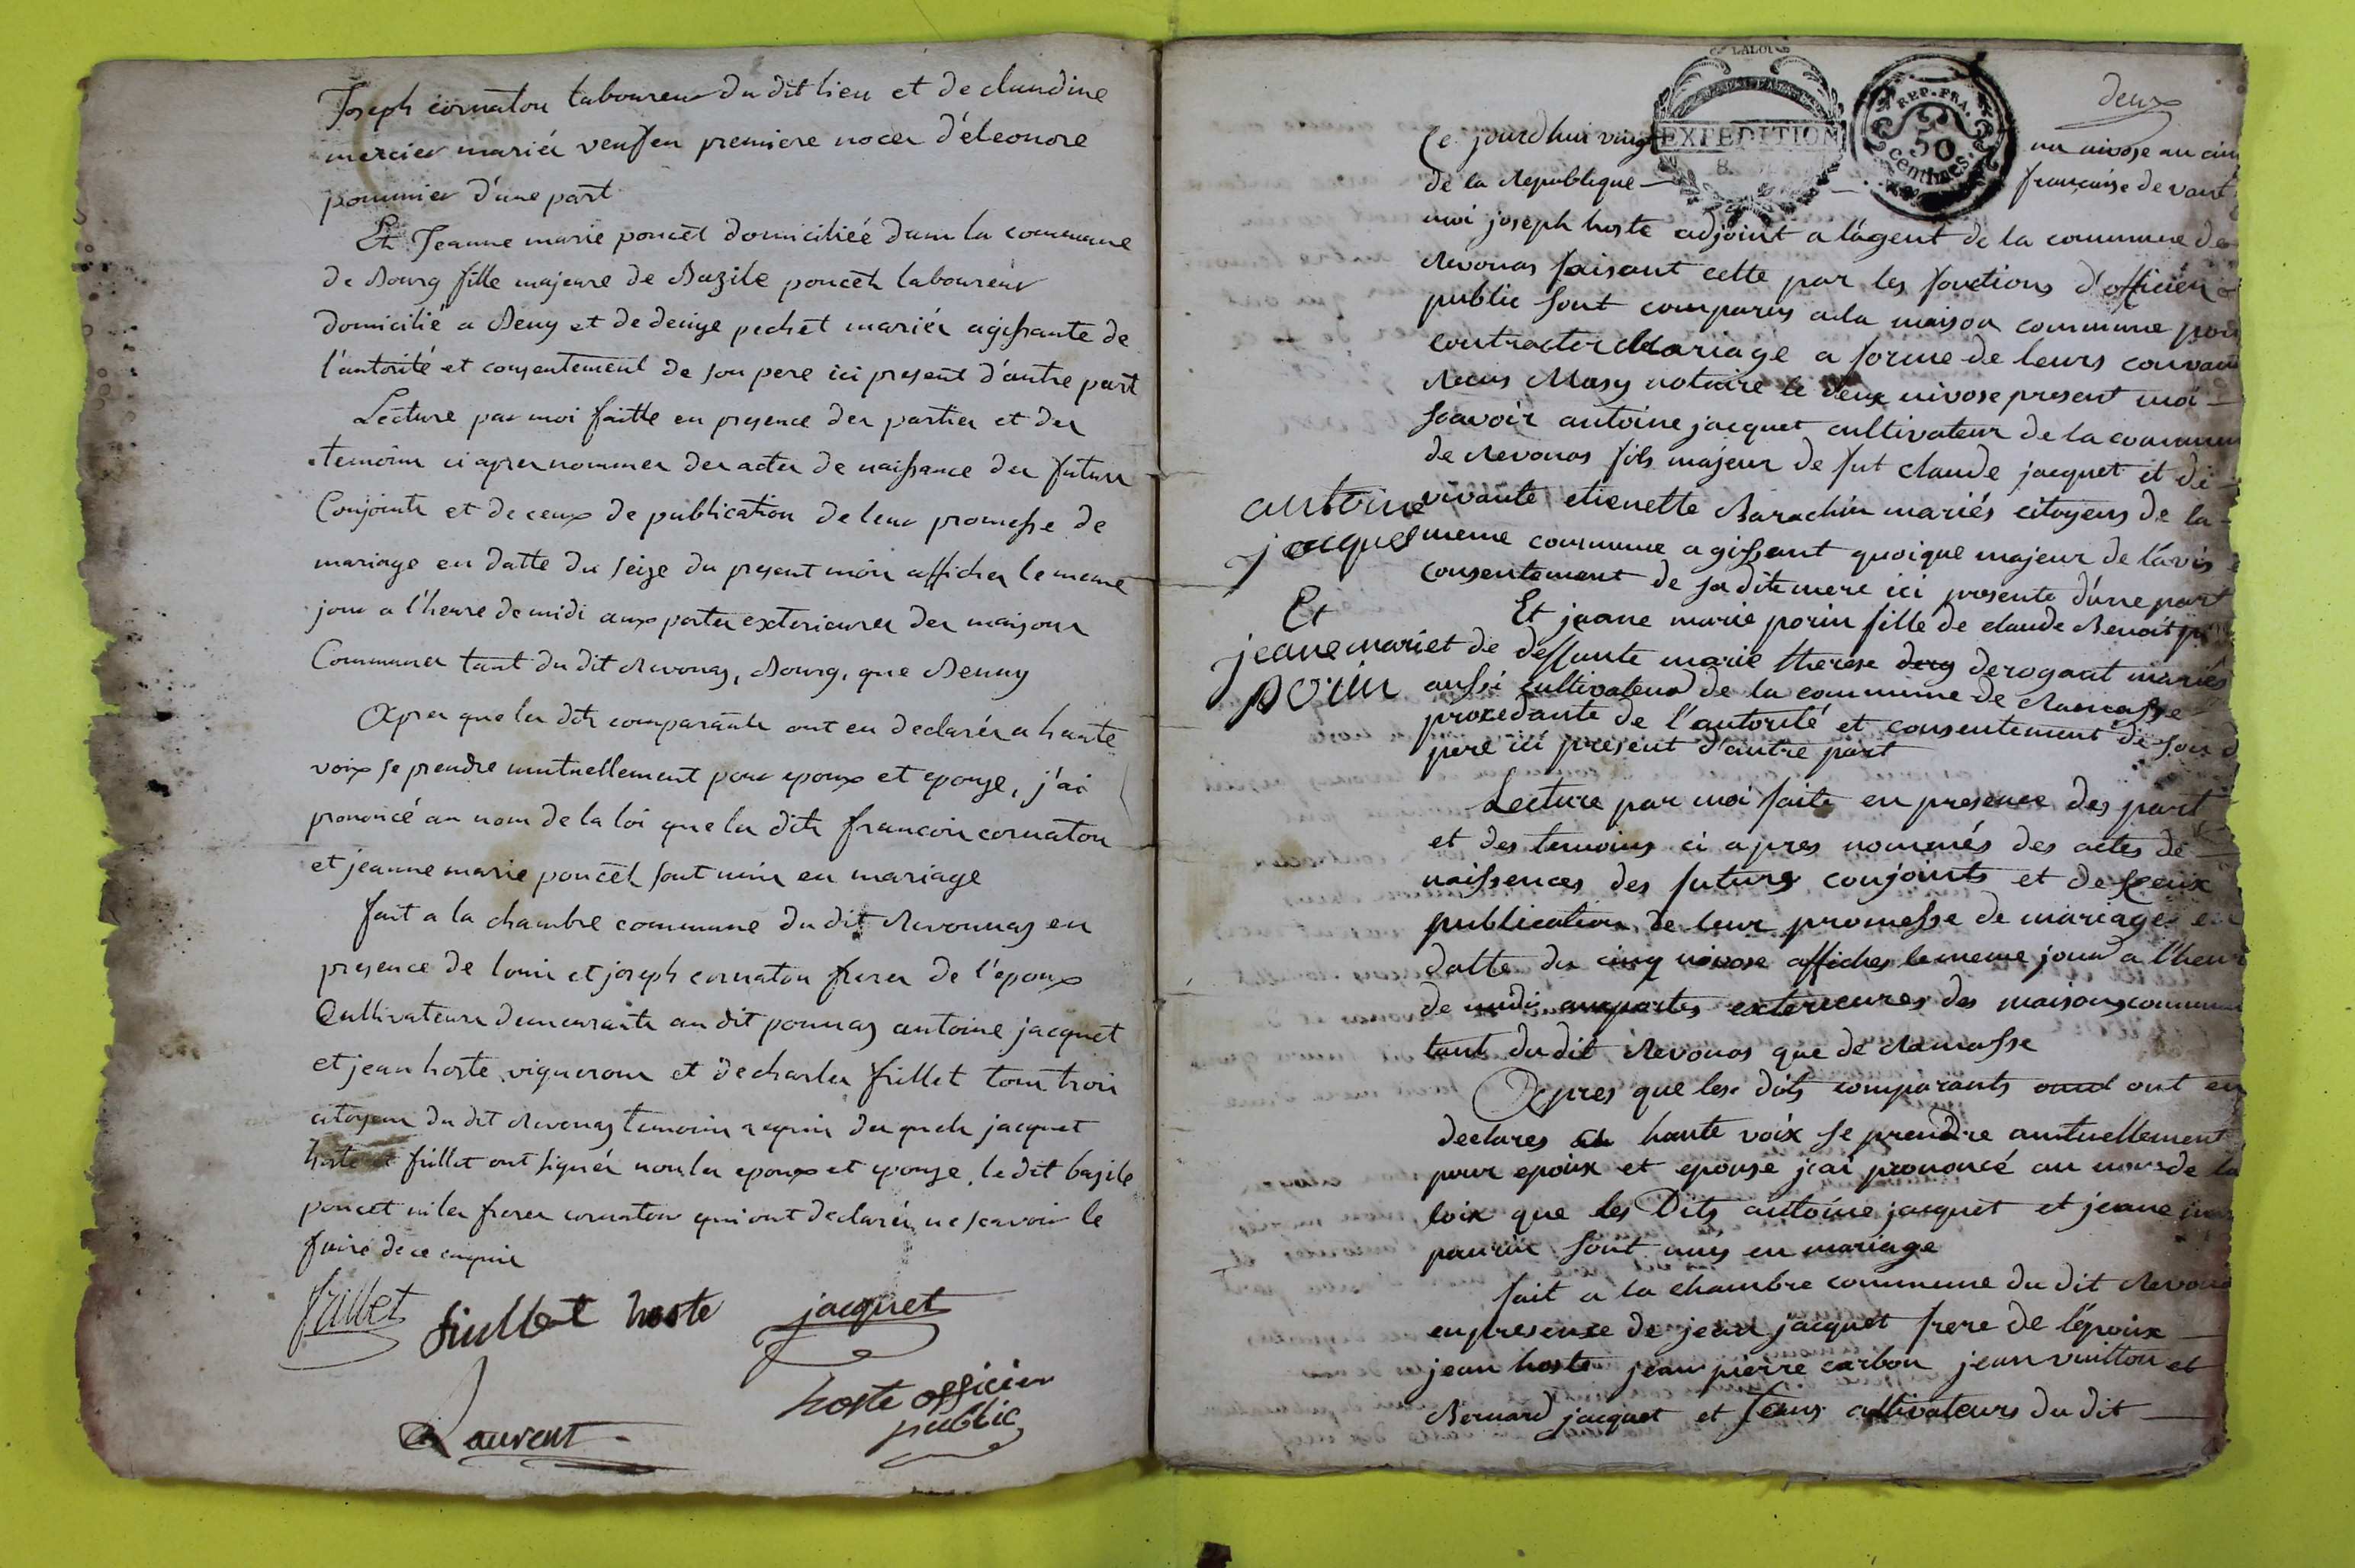 Joseph cornaton laboureur du dit lieu et de claudine
mercier mariés veuf en premiere noces d'éleonore
pommier d'une part
Et Jeanne marie poncet domiciliée dans la commune
de Bourg fille majeure de Bazile poncet laboureur
domicilié a Beny et de denise pechet mariés agissante de
l'autorité et consentement de son pere ici present d'autre part
Lecture par moi faitte en presence des parties et des
temoins ci apres nommes des actes de naissance des futurs
Conjoints et de ceux de publication de leur promesse de
mariage en datte du seize du present mois affiches le meme
jour a l'heure de midi aux portes exterieures des maisons
Communes tant du dit Revonas, Bourg, que Benny
Apres que les dits comparants ont eu declarés a haute
voix se prendre mutuellement pour epoux et epouse, j'ai
prononcé au nom de la loi que les dits francois cornaton
et jeanne marie poncet sont unis en mariage
fait a la chambre commune du dit Revonnas en
presence de louis et joseph cornaton freres de l'epoux
Cultivateurs demeurants au dit antoine jacquet
et jean hoste vignerons et de charles frillet tous trois
citoyens du dit Revonas temoins requis des quels jacquet
hoste et frillet ont signés non les epoux et epouse, le dit bazile
poncet ni les freres cornaton qui ont declarés ne scavoir le
faire de ce enquis
frillet
hoste
jacquet
Laurent
hoste officier
public
deux
EXPEDITION
REP. FRA.
50
centimes.
Ce jourd'hui vingt un nivose an cin
de la Republique française devant
moi joseph hoste adjoint a l'agent de la commune de
Revonas faisant cette par les fonctions d'officier
public sont comparus a la maison commune pour
contracter Mariage a forme de leurs
Recus Masy notaire le deux nivose present moi
scavoir antoine jacquet cultivateur de la commune
de Revonas fils majeur de fut claude jacquet et de
vivante etienette Barachin mariés citoyens de la
meme commune agissant quoique majeur de l'avis
consentement de sa dite mere ici presente d'une part
antoine
jacquet
Et
jeane marie
porin
Et jeane marie porin fille de claude Benoit
et de deffunte marie therese derogant mariés
aussi cultivateur de la commune de Ramasse
procedante de l'autorité et consentement de son
pere ici present d'autre part
Lecture par moi faite en presence des part
et des temoins ci apres nommés des actes de
naissences des futurs conjoints et de ceux
publication de leur promesse de mariages en
datte du cinq nivose affiches le meme jour a l'heure
de midi aux portes exterieures des maisons commun
tant du dit Revonas que de Ramasse
Apres que les dits comparants ont eu
declares a haute voix se prendre mutuellement
pour epoux et epouse jai prononcé au nom de la
loix que les Dits antoine jacquet et jeane
sont unis en mariage
fait a la chambre commune du dit Revona
en presence de jean jacquet frere de l'epoux
jean hoste jean pierre carbon jean vuitton et
Bernard jacquet et cultivateurs du dit